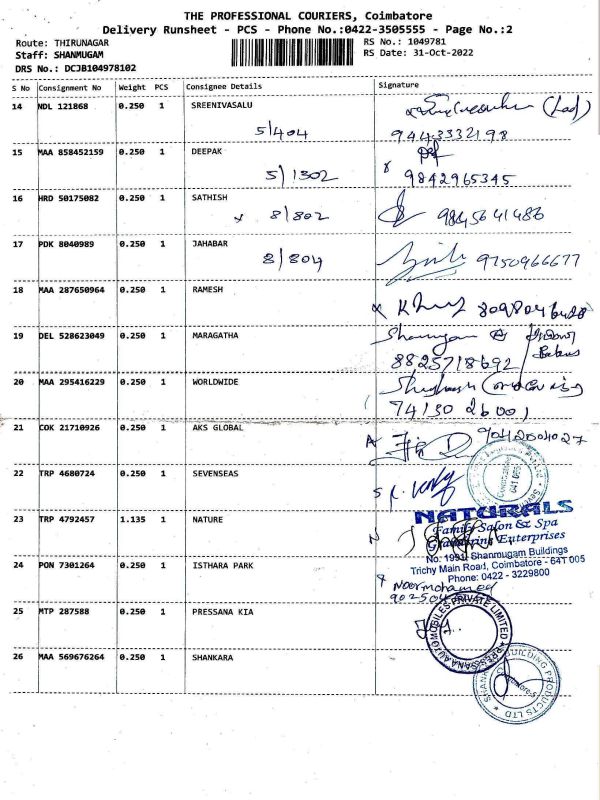 THE PROFESSIONAL COURIERS, Coimbatore
Delivery Runsheet - PCS - Phone No.:0422-3505555 - Page No.:2
Route: THIRUNAGAR
RS No.: 1049781
Staff: SHANMUGAM
RS Date: 31-Oct-2022
DRS No.: DCJB104978102
S No Consignment No Weight PCS Consignee Details Signature
14 NDL 121868 0.250 1 SREENIVASALU
5/404 9443332198
15 MAA 858452159 0.250 1 DEEPAK
5/1302 9842965345
16 HRD 50175082 0.250 1 SATHISH
x 8/802 9845641486
17 PDK 8040989 0.250 1 JAHABAR
8/804 9750966677
18 MAA 287650964 0.250 1 RAMESH
19 DEL 528623049 0.250 1 MARAGATHA
Shanmugam
8825718692
20 MAA 295416229 0.250 1 WORLDWIDE
74130 26001
21 COK 21710926 0.250 1 AKS GLOBAL
9042004027
22 TRP 4680724 0.250 1 SEVENSEAS
23 TRP 4792457 1.135 1 NATURE
NATURALS
Family Salon & Spa
Enterprises
No. 1991, Shanmugam Buildings
Trichy Main Road, Coimbatore - 641 005
Phone: 0422 - 3229800
24 PON 7301264 0.250 1 ISTHARA PARK
Noormohamed
25 MTP 287588 0.250 1 PRESSANA KIA
PRESSANA AUTOMOBILES PRIVATE LIMITED
26 MAA 569676264 0.250 1 SHANKARA
SHANKARA BUILDING PRODUCTS LTD